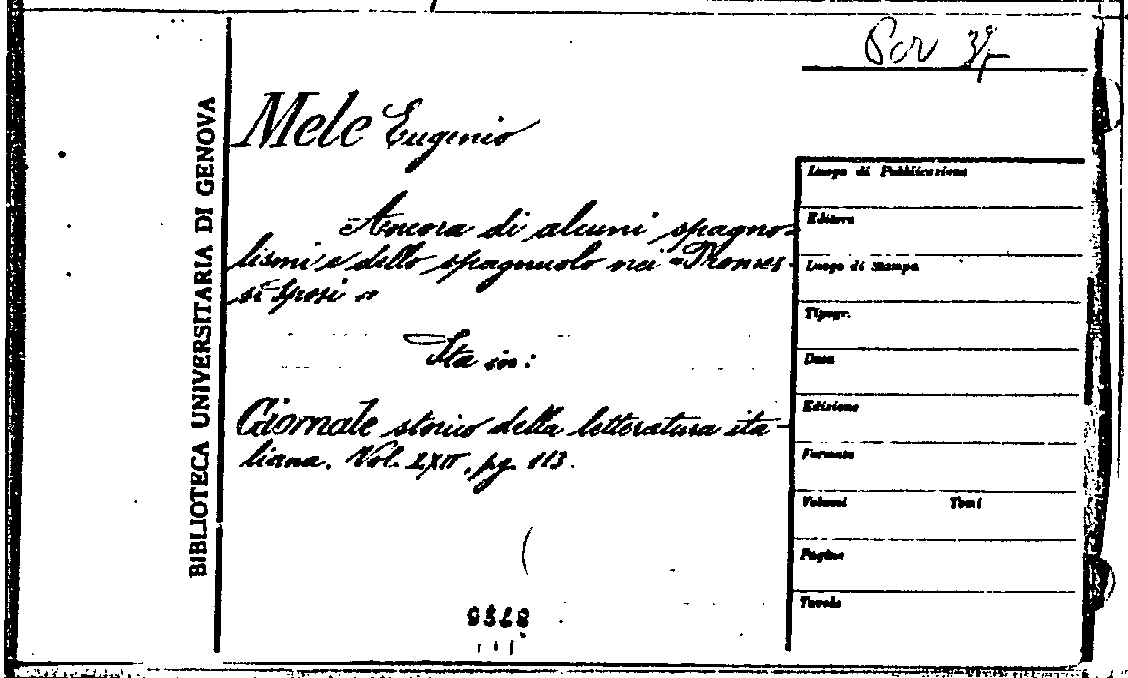 Per 3/r
BIBLIOTECA UNIVERSITARIA DI GENOVA
Mele Eugenio
Ancora di alcuni spagno-
lismi e dello spagnuolo nei "Promes-
si Sposi"
Sta in:
Giornale storico della letteratura ita-
liana. Vol. LXIV, pg. 113.
9328
Luogo di Pubblicazione
Editore
Luogo di Stampa
Tipogr.
Data
Edizione
Formato
Volumi Tomi
Pagine
Tavole